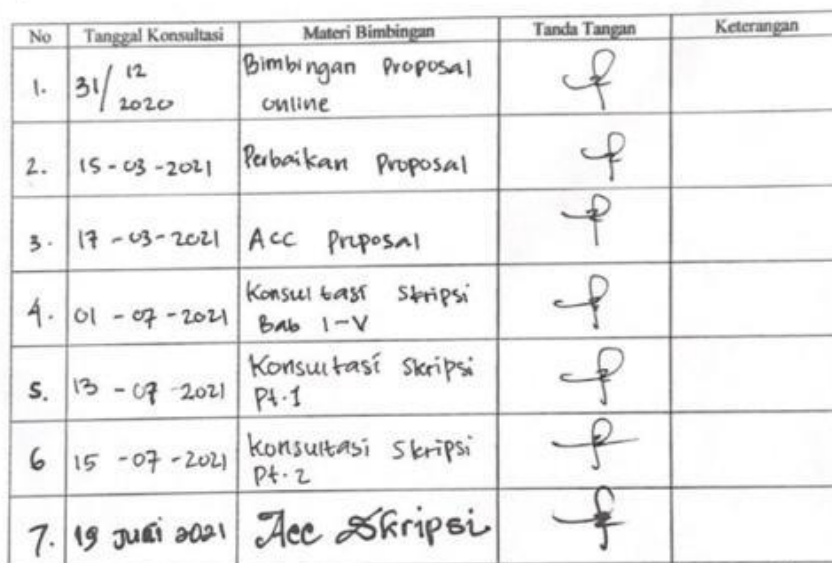 No Tanggal Konsultasi Materi Bimbingan Tanda Tangan Keterangan
1. 31/12 2020 Bimbingan Proposal
online
2. 15-03-2021 Perbaikan Proposal
3. 17-03-2021 Acc Proposal
4. 01-07-2021 Konsultasi Skripsi
Bab I-V
5. 13-07-2021 Konsultasi Skripsi
Pt.1
6 15-07-2021 Konsultasi Skripsi
Pt.2
7. 19 2021 Acc Skripsi